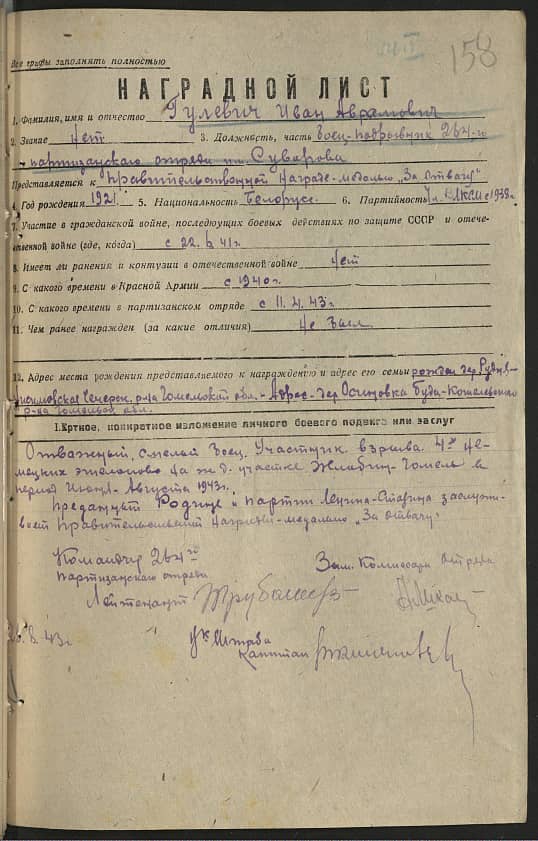 158
Все графы заполнять полностью
НАГРАДНОЙ ЛИСТ
1. Фамилия, имя и отчество Гулевич Иван Аврамович
2. Звание нет 3. Должность, часть боец-подрывник 264-й
партизанского отряда им. Суварова
Представляется к правительственной награде-медалью „За отвагу"
4. Год рождения 1921 5. Национальность Белорус. 6. Партийность ВЛКСМ с 1938г.
7. Участие в гражданской войне, последующих боевых действиях по защите СССР и отече-
ственной войне (где, когда) с 22.6.41г.
8. Имеет ли ранения и контузии в отечественной войне нет
9. С какого времени в Красной Армии с 1940г.
10. С какого времени в партизанском отряде с 11.4.43г.
11. Чем ранее награжден (за какие отличия) не был
12. Адрес места рождения представляемого к награждению и адрес его семьи рожден дер. Рудня-
р-на Гомельской обл.-Адрес-дер Осиновка Буда-Кошелевского
р-на Гомельской обл.
I. Кртное, конкретное изложение личного боевого подвига или заслуг
Отважный, смелый боец. Участник взрыва 4х не-
мецких эшелонов на ж.д. участке Жлобин-Гомель в
период Июнь-Августа 1943г.
Преданный Родине и партии Ленина-Сталина заслужи-
вает правительственной награды-медалью „За отвагу"
Командир 264го
партизанского отряда
Зам. Комиссара отряда
Лейтенант
8.43г
Штаба
Капитан